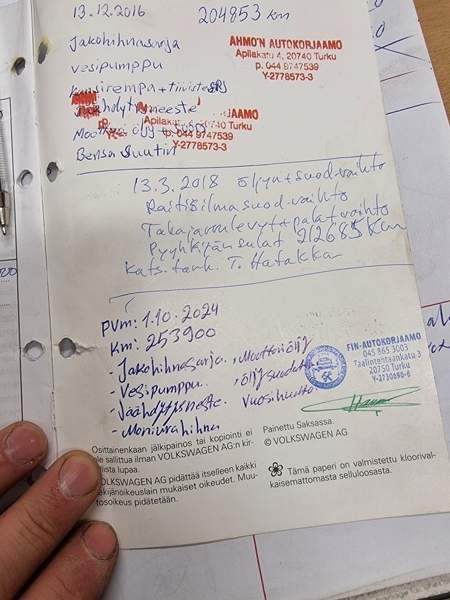 13.12.2016 204853 km
Jakohihnasarja
vesipumppu
+ tiivisteet
Jäähdytysneste
Moottoriöljy
Bensa Suutin
AHMO'N AUTOKORJAAMO
Apilakatu 4, 20740 Turku
p. 044 9747539
Y-2778573-3
JAAMO
Apilakatu 20740 Turku
p. 044 9747539
Y-2778573-3
13.3.2018 öljyn+suod.vaihto
Raitisilmasuod.vaihto
Takajarrulevyt+palat vaihto
Pyyhkijän sulat 212685 Km
Kats.tark. T. Hatakka
PVM: 1.10.2024
KM: 253900
- Jakohihnasarja. , Moottoriöljy
- Vesipumppu. , öljysuodatin
- Jäähdytysneste. Vuosihuolto
- Moniurahihna
FIN-AUTOKORJAAMO
045 865 3003
Taalintehtaankatu 3
20750 Turku
Y-2730686-8
Osittainenkaan jälkipainos tai kopiointi ei
ole sallittua ilman VOLKSWAGEN AG:n kir-
jallista lupaa.
VOLKSWAGEN AG pidättää itselleen kaikki
tekijänoikeuslain mukaiset oikeudet. Muu-
tosoikeus pidätetään.
Painettu Saksassa.
© VOLKSWAGEN AG
Tämä paperi on valmistettu kloorival-
kaisemattomasta selluloosasta.